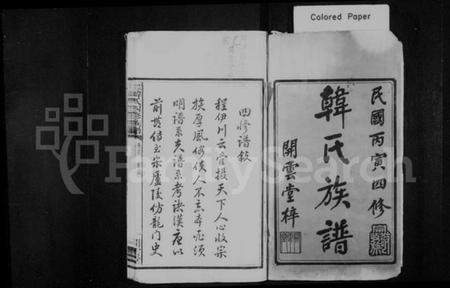 Colored Paper
民國丙寅四修
韓氏族譜
開雲堂梓
四修譜敘
程伊川云管摄天下人心收宗
族厚風俗使人不忘本必須
明譜系夫譜系考諸漢唐以
前其传至宋廬陵仿龍门史
FamilySearch